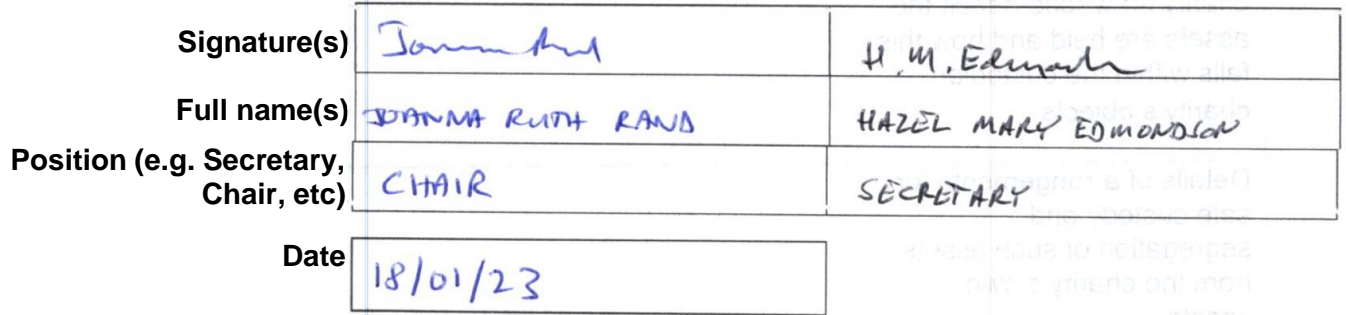 Signature(s) H. M. Edmondson
Full name(s) JOANNA RUTH RAND HAZEL MARY EDMONDSON
Position (e.g. Secretary,
Chair, etc) CHAIR SECRETARY
Date 18/01/23